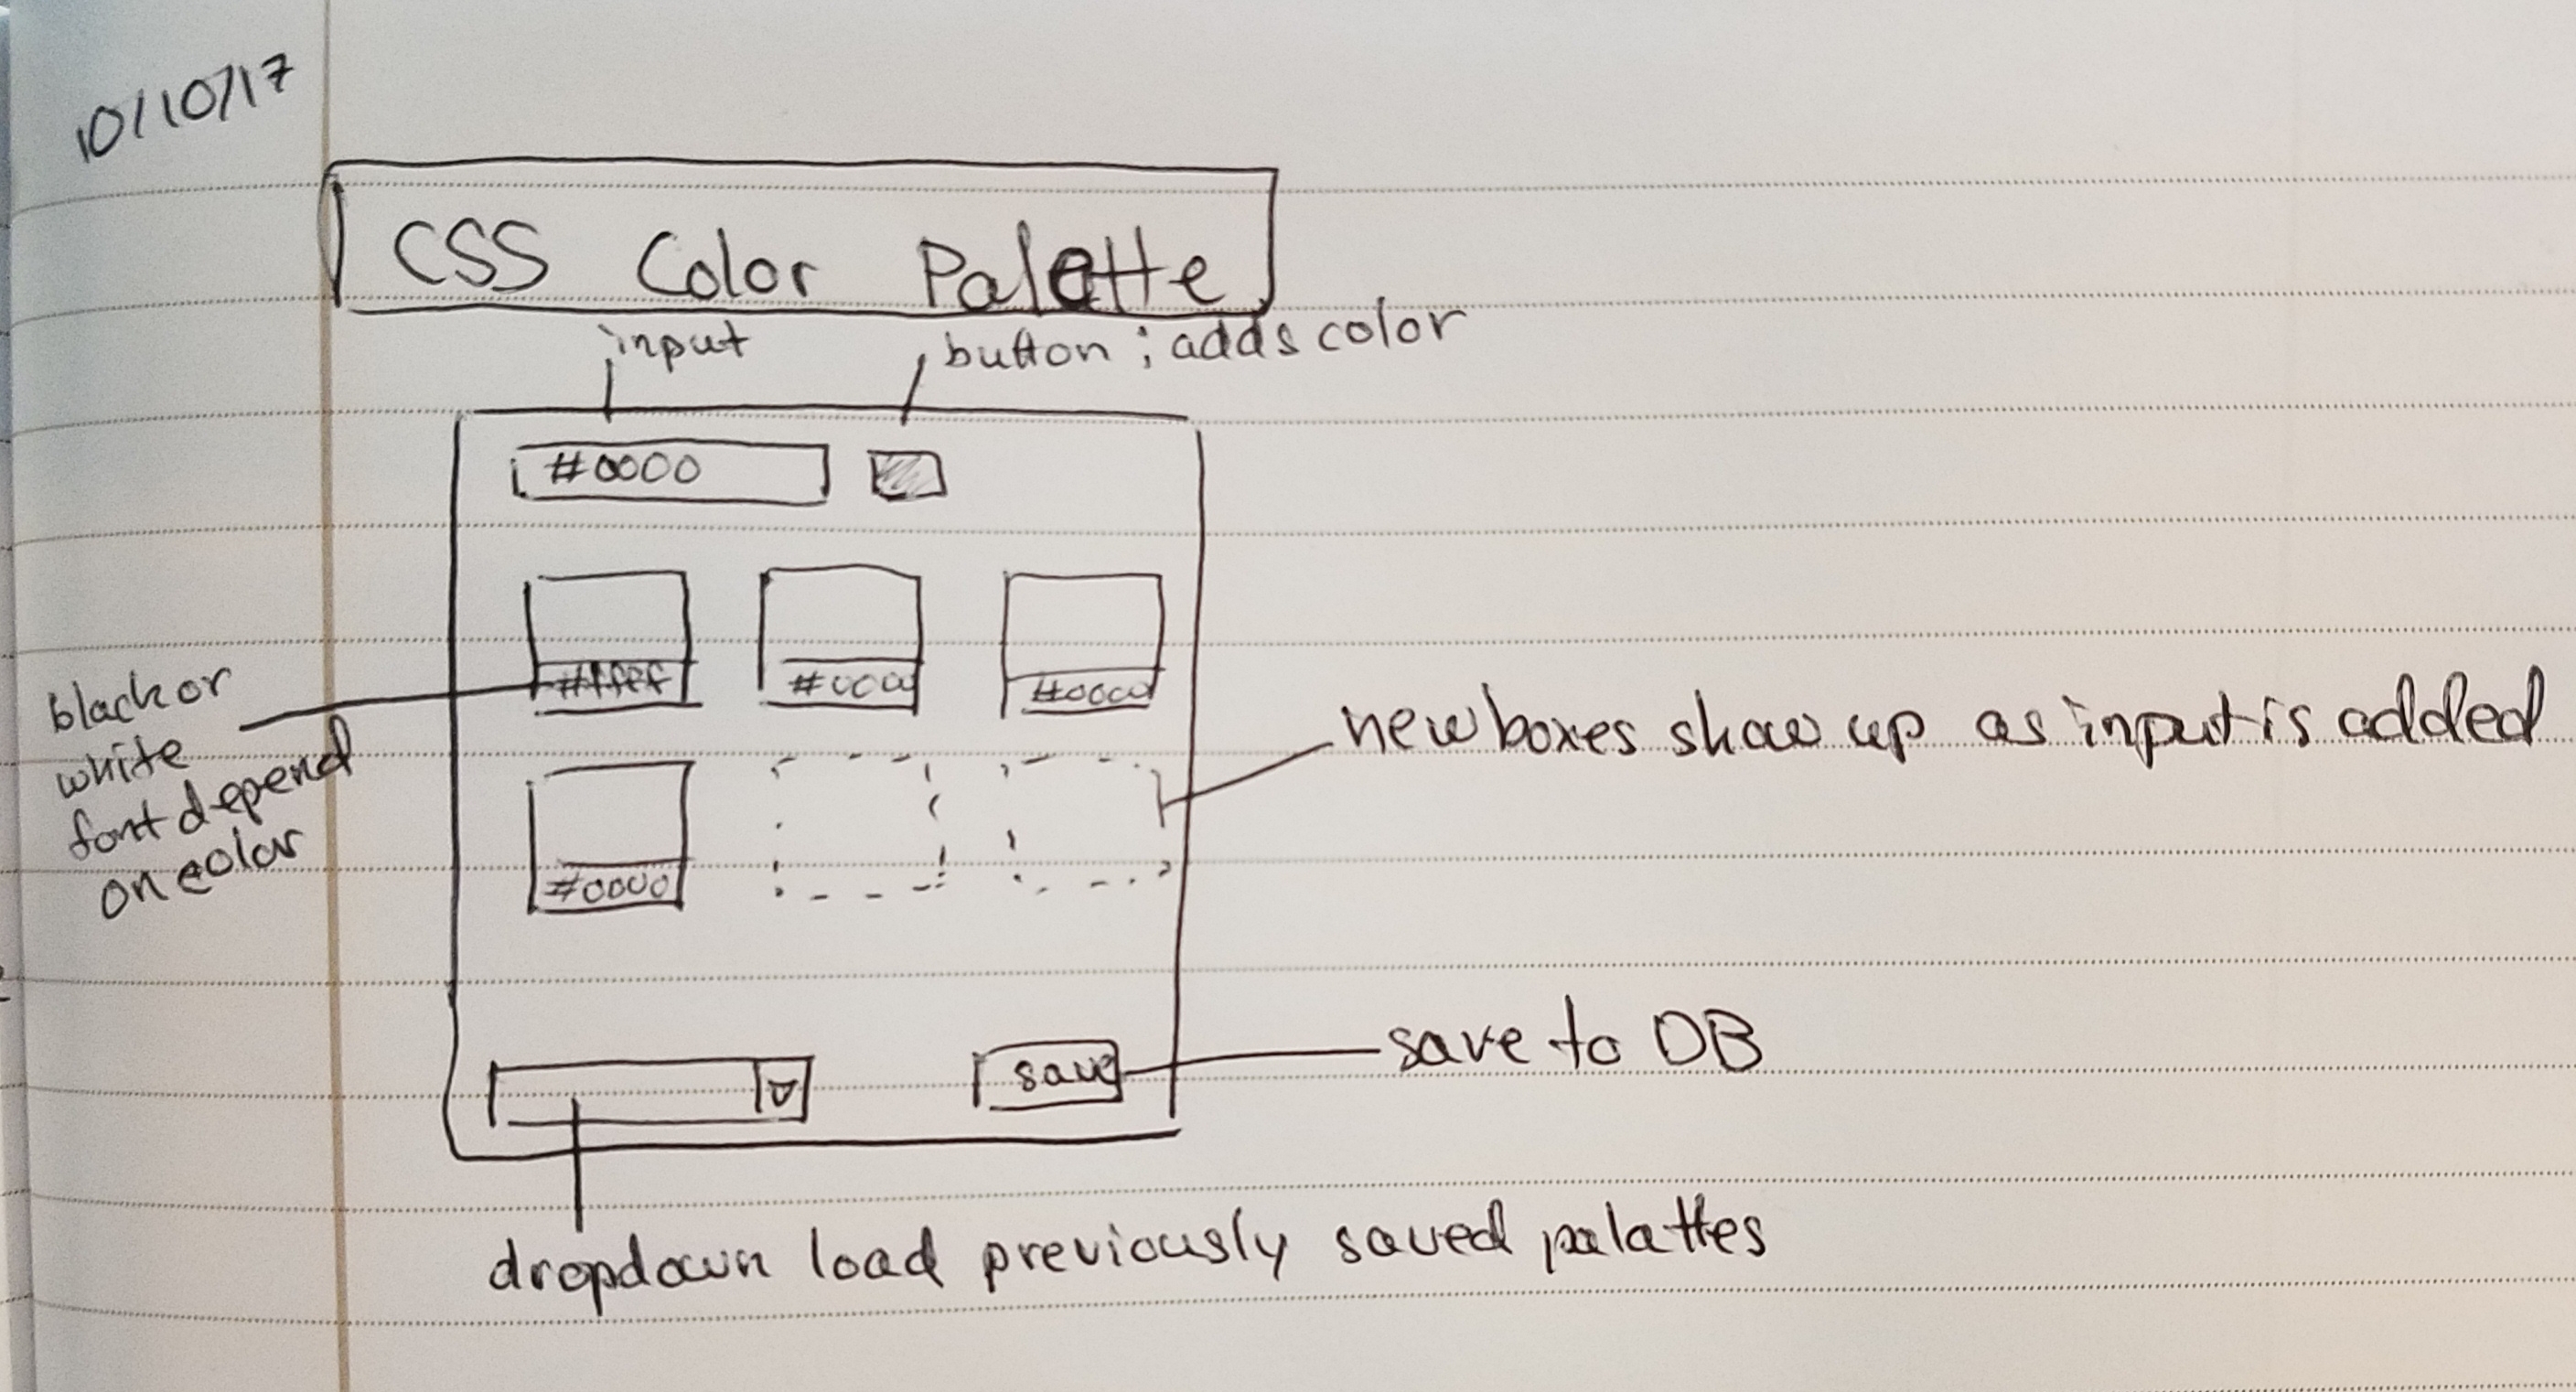 10/10/17
CSS Color Palette
input
button ; adds color
#0000
#ffff #0000 #0000
black or
white
font depend
on color
new boxes show up as input is added
#0000
save
save to DB
dropdown load previously saved palattes